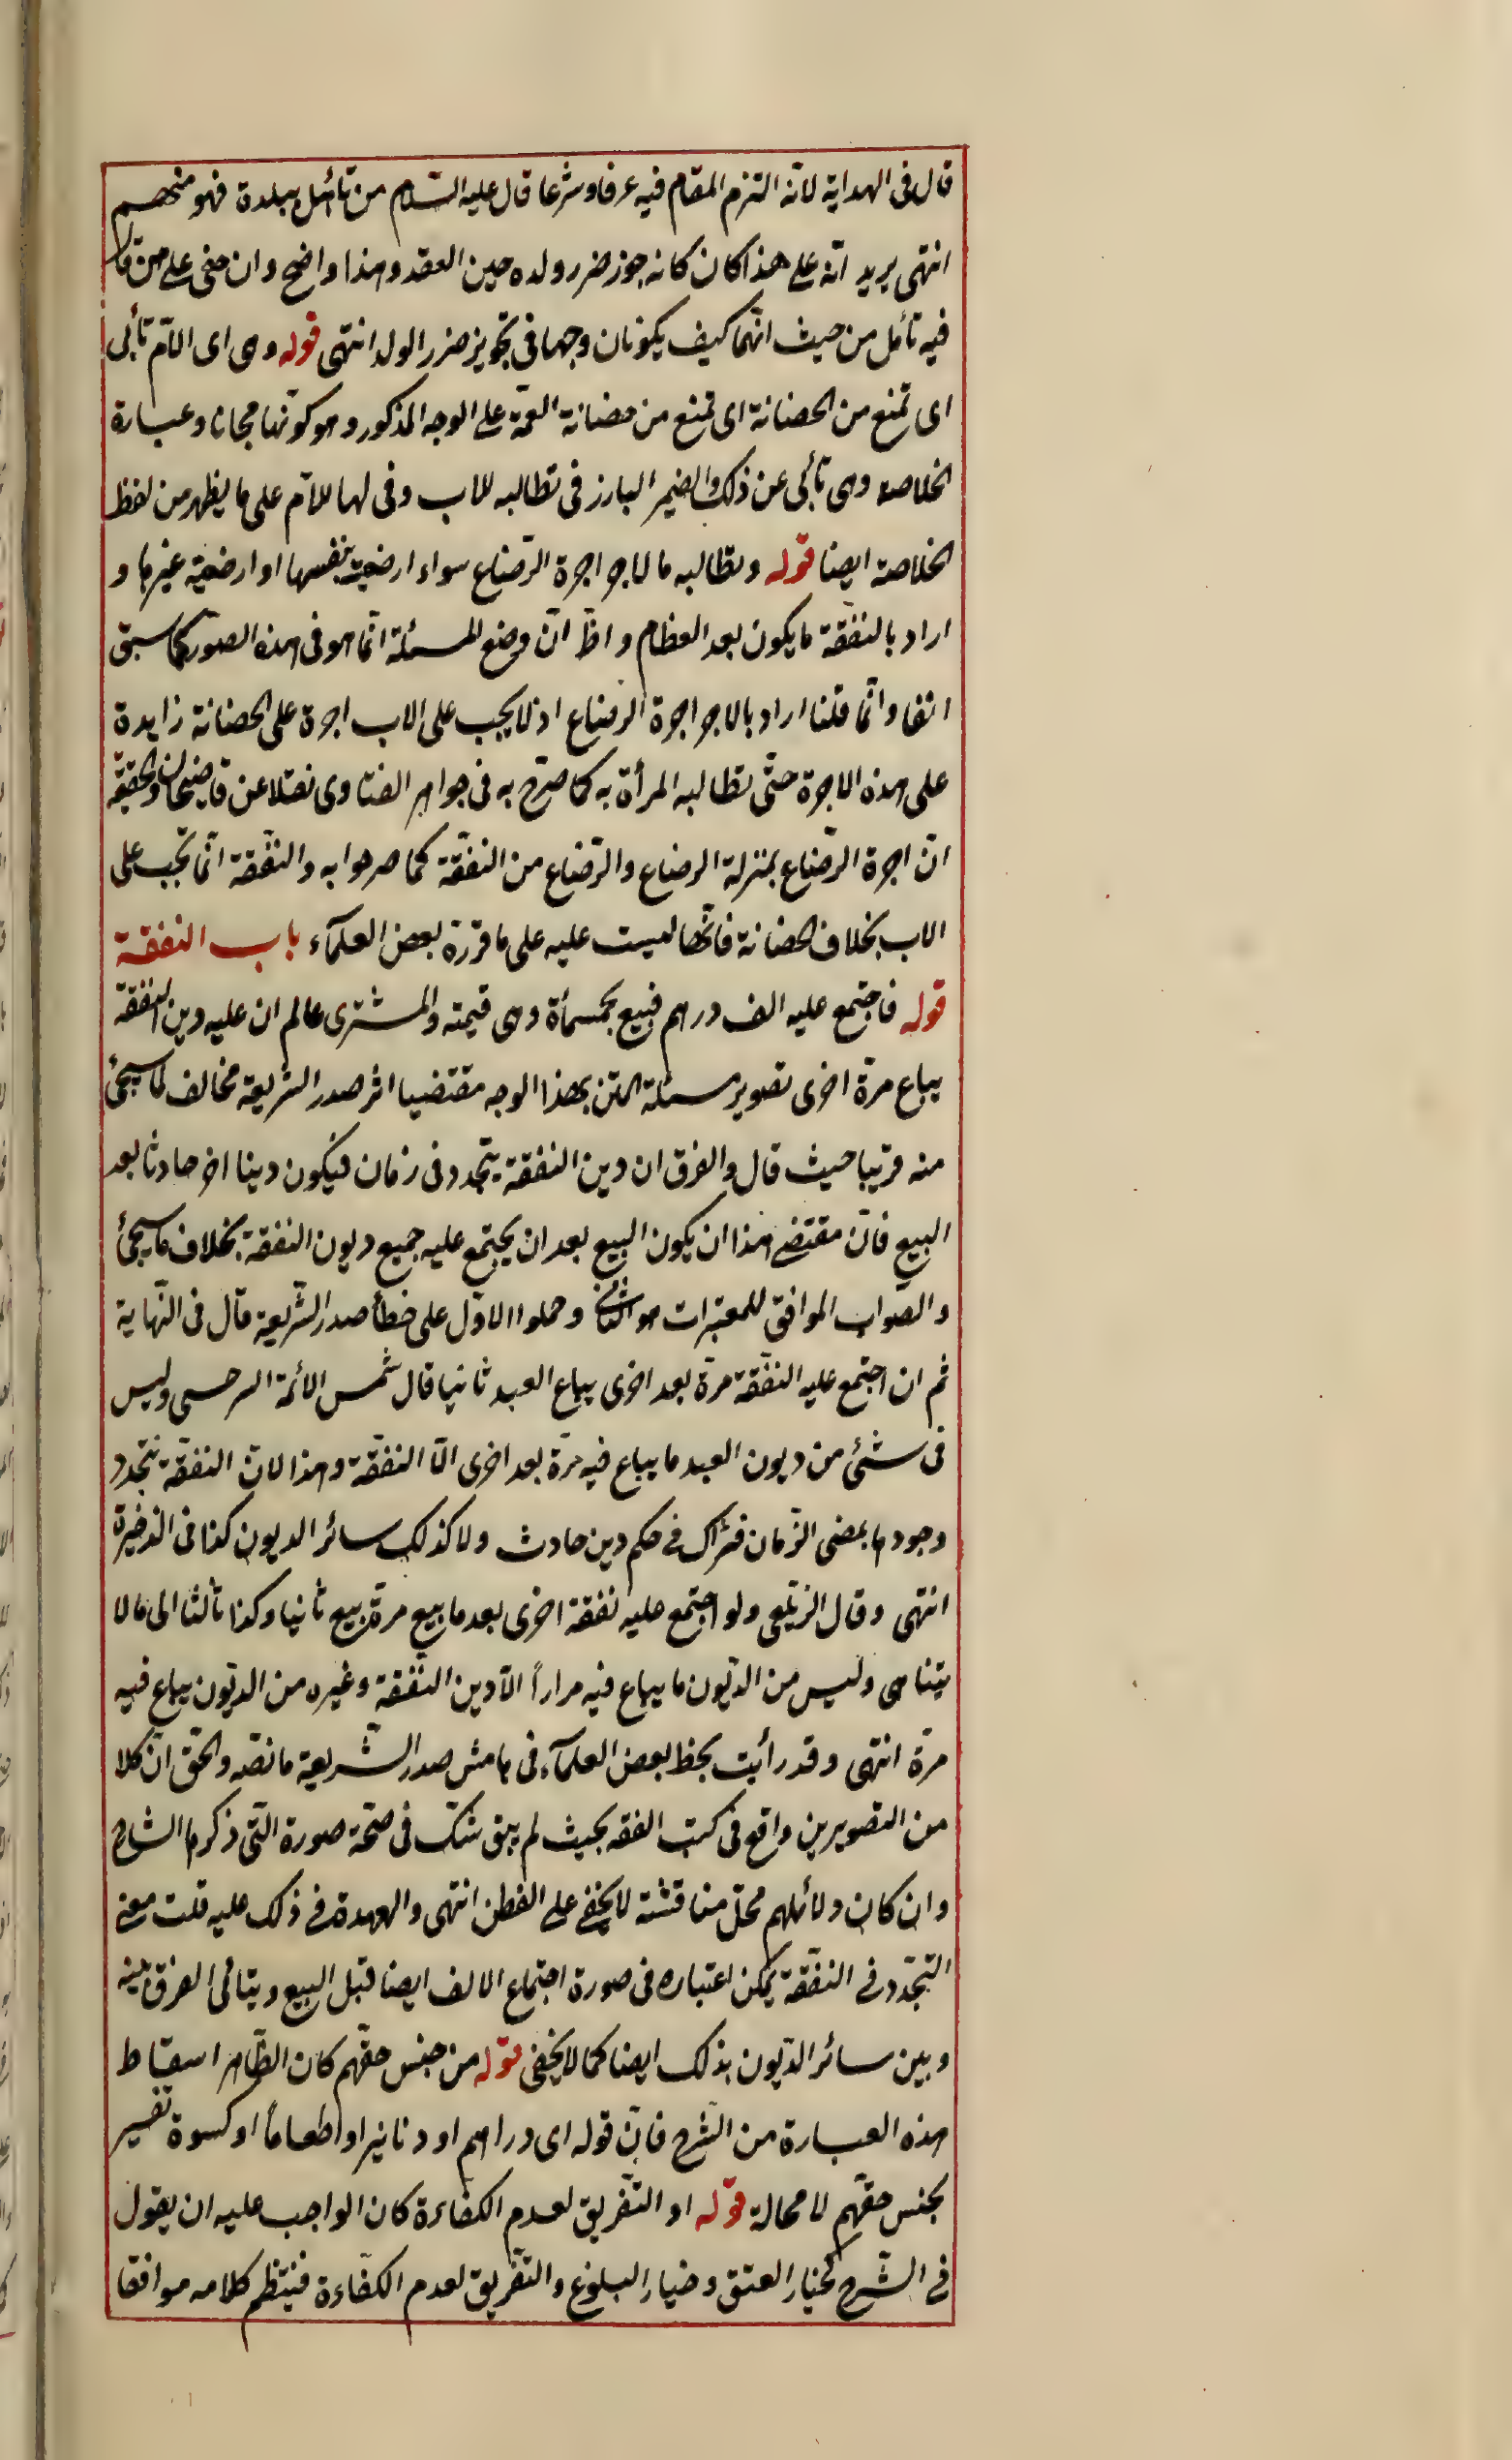 قال فى الهداية لانه التزم المقام فيه عرفا وشرعا قال عليه السلام من تأهل ببلدة فهو منهم
انتهى يريد انه على هذا كان كانه جوز ضرر ولده حين العقد وهذا واضح وان خفى على من قال
فيه تأمل من حيث انهما كيف يكونان وجها فى تجويز ضرر الولد انتهى قوله وهى اى الام تأبى
اى تمنع من الحضانة اى تمنع من حضانة العمة على الوجه المذكور وهو كونها مجانا وعبارة
الخلاصة وهى تأبى عن ذلك والضمير البارز فى تطالبه للاب وفى لها للام على ما يظهر من لفظ
الخلاصة ايضا قوله وتطالبه ما لاجر اجرة الرضاع سواء ارضعته بنفسها او ارضعته غيرها و
اراد بالنفقة ما يكون بعد الفطام واظن ان وضع المسئلة انما هو فى هذه الصور كما سبق
انفا وانما قلنا اراد بالاجر اجرة الرضاع اذ لا يجب على الاب اجرة على الحضانة زايدة
على هذه الاجرة حتى تطالبه المرأة به كما صرح به فى جواهر الفتاوى نقلا عن قاضيخان وتحقيقه
ان اجرة الرضاع بمنزلة الرضاع والرضاع من النفقة كما صرحوا به والنفقة انما تجب على
الاب بخلاف الحضانة فانها ليست عليه على ما قرره بعض العلماء باب النفقة
قوله فاجتمع عليه الف درهم فبيع بخمسمأة وهى قيمته والمشترى عالم ان عليه دين النفقة
يباع مرة اخرى تصوير مسئلة المتن بهذا الوجه مقتضيا اثر صدر الشريعة مخالف لما سيجئ
منه قريبا حيث قال والفرق ان دين النفقة يتجدد فى زمان فيكون دينا اخر حادثا بعد
البيع فان مقتضى هذا ان يكون البيع بعد ان يجتمع عليه جميع ديون النفقة بخلاف ما سيجئ
والصواب الموافق للمعتبرات هو الثانى وحملوا الاول على خطأ صدر الشريعة قال فى النهاية
ثم ان اجتمع عليه النفقة مرة بعد اخرى يباع العبد ثانيا قال شمس الائمة السرخسى وليس
فى شئ من ديون العبد ما يباع فيه مرة بعد اخرى الا النفقة وهذا لان النفقة يتجدد
وجودها بمضى الزمان فذاك فى حكم دين حادث ولا كذلك سائر الديون كذا فى الذخيرة
انتهى وقال الزيلعى ولو اجتمع عليه نفقة اخرى بعد ما بيع مرة بيع ثانيا وكذا ثالثا الى ما لا
يتناهى وليس من الديون ما يباع فيه مرارا الا دين النفقة وغيره من الديون يباع فيه
مرة انتهى وقد رأيت بخط بعض العلماء فى هامش صدر الشريعة ما نصه والحق ان كلا
من التصويرين واقع فى كتب الفقه بحيث لم يبق شك فى صحة صورة التى ذكرها الشارح
وان كان دلائلهم محل مناقشة لا يخفى على الفطن انتهى والعهدة فى ذلك عليه قلت معنى
التجدد فى النفقة يمكن اعتباره فى صورة اجتماع الالف ايضا قبل البيع ويتأتى الفرق بينه
وبين سائر الديون بذلك ايضا كما لا يخفى قوله من جنس حقهم كان الظاهر اسقاط
هذه العبارة من الشرح فان قوله اى دراهم او دنانير او طعاما او كسوة تفسير
بجنس حقهم لا محالة قوله او التفريق لعدم الكفاءة كان الواجب عليه ان يقول
فى الشرح كخيار العتق وخيار البلوغ والتفريق لعدم الكفاءة فينتظم كلامه موافقا